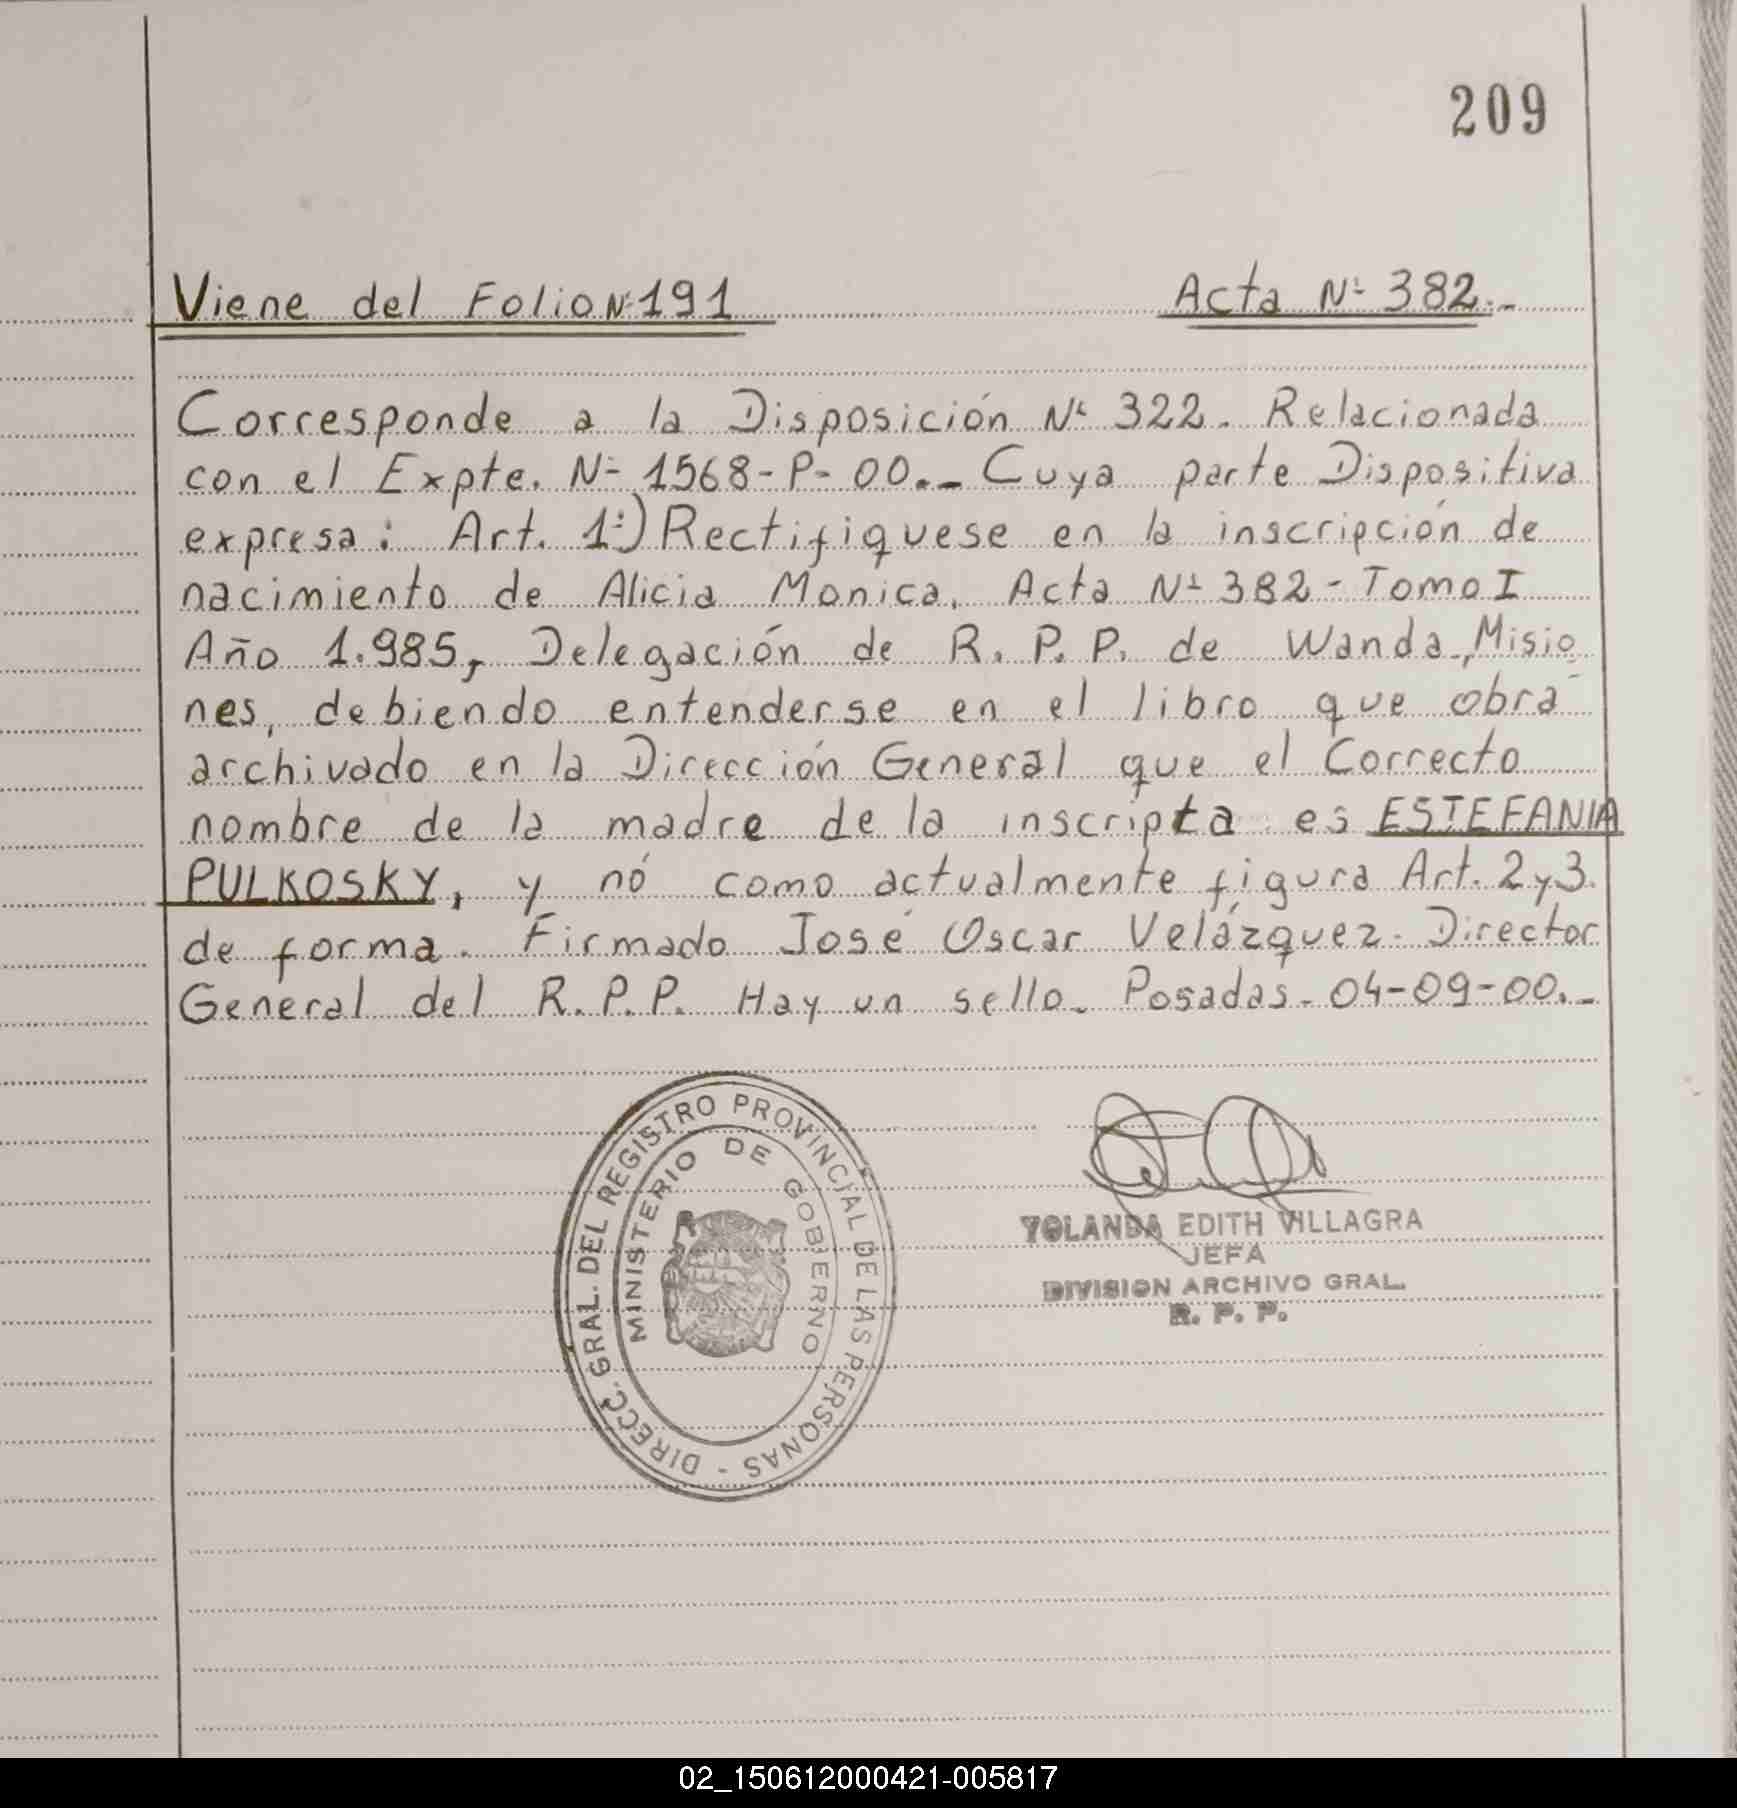 209
Viene del Folio Nº 191 Acta Nº 382.-
Corresponde a la Disposición Nº 322. Relacionada
con el Expte. Nº 1568-P-00.- Cuya parte Dispositiva
expresa: Art. 1º) Rectifiquese en la inscripción de
nacimiento de Alicia Monica. Acta Nº 382 - Tomo I
Año 1.985, Delegación de R. P. P. de Wanda, Misio
nes, debiendo entenderse en el libro que obra
archivado en la Dirección General que el Correcto
nombre de la madre de la inscripta es ESTEFANIA
PULKOSKY, y nó como actualmente figura Art. 2 y 3.
de forma. Firmado José Oscar Velázquez. Director
General del R. P. P. Hay un sello. Posadas. 04-09-00.-
DIRECC. GRAL. DEL REGISTRO PROVINCIAL DE LAS PERSONAS -
MINISTERIO DE GOBIERNO
YOLANDA EDITH VILLAGRA
JEFA
DIVISION ARCHIVO GRAL.
R. P. P.
02_150612000421-005817